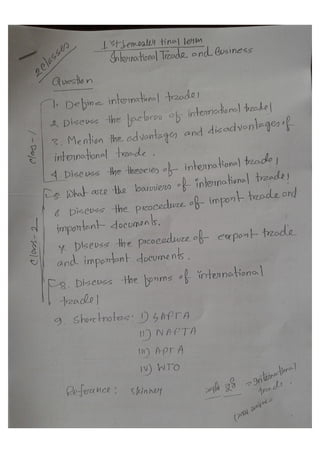 2 classes
1st semester final term
International Trade and Business
Question
Class-1
1. Define international trade;
2. Discuss the factors of international trade;
3. Mention the advantages and disadvantages of
international trade.
4. Discuss the theories of international trade;
Class-2
5. What are the barriers of international trade;
6. Discuss the procedure of import trade and
important documents.
7. Discuss the procedure of export trade
and important documents.
8. Discuss the forms of international
trade;
9. Shortnotes: i) SAFTA
ii) NAFTA
iii) APTA
iv) WTO
Reference:
International
trade.